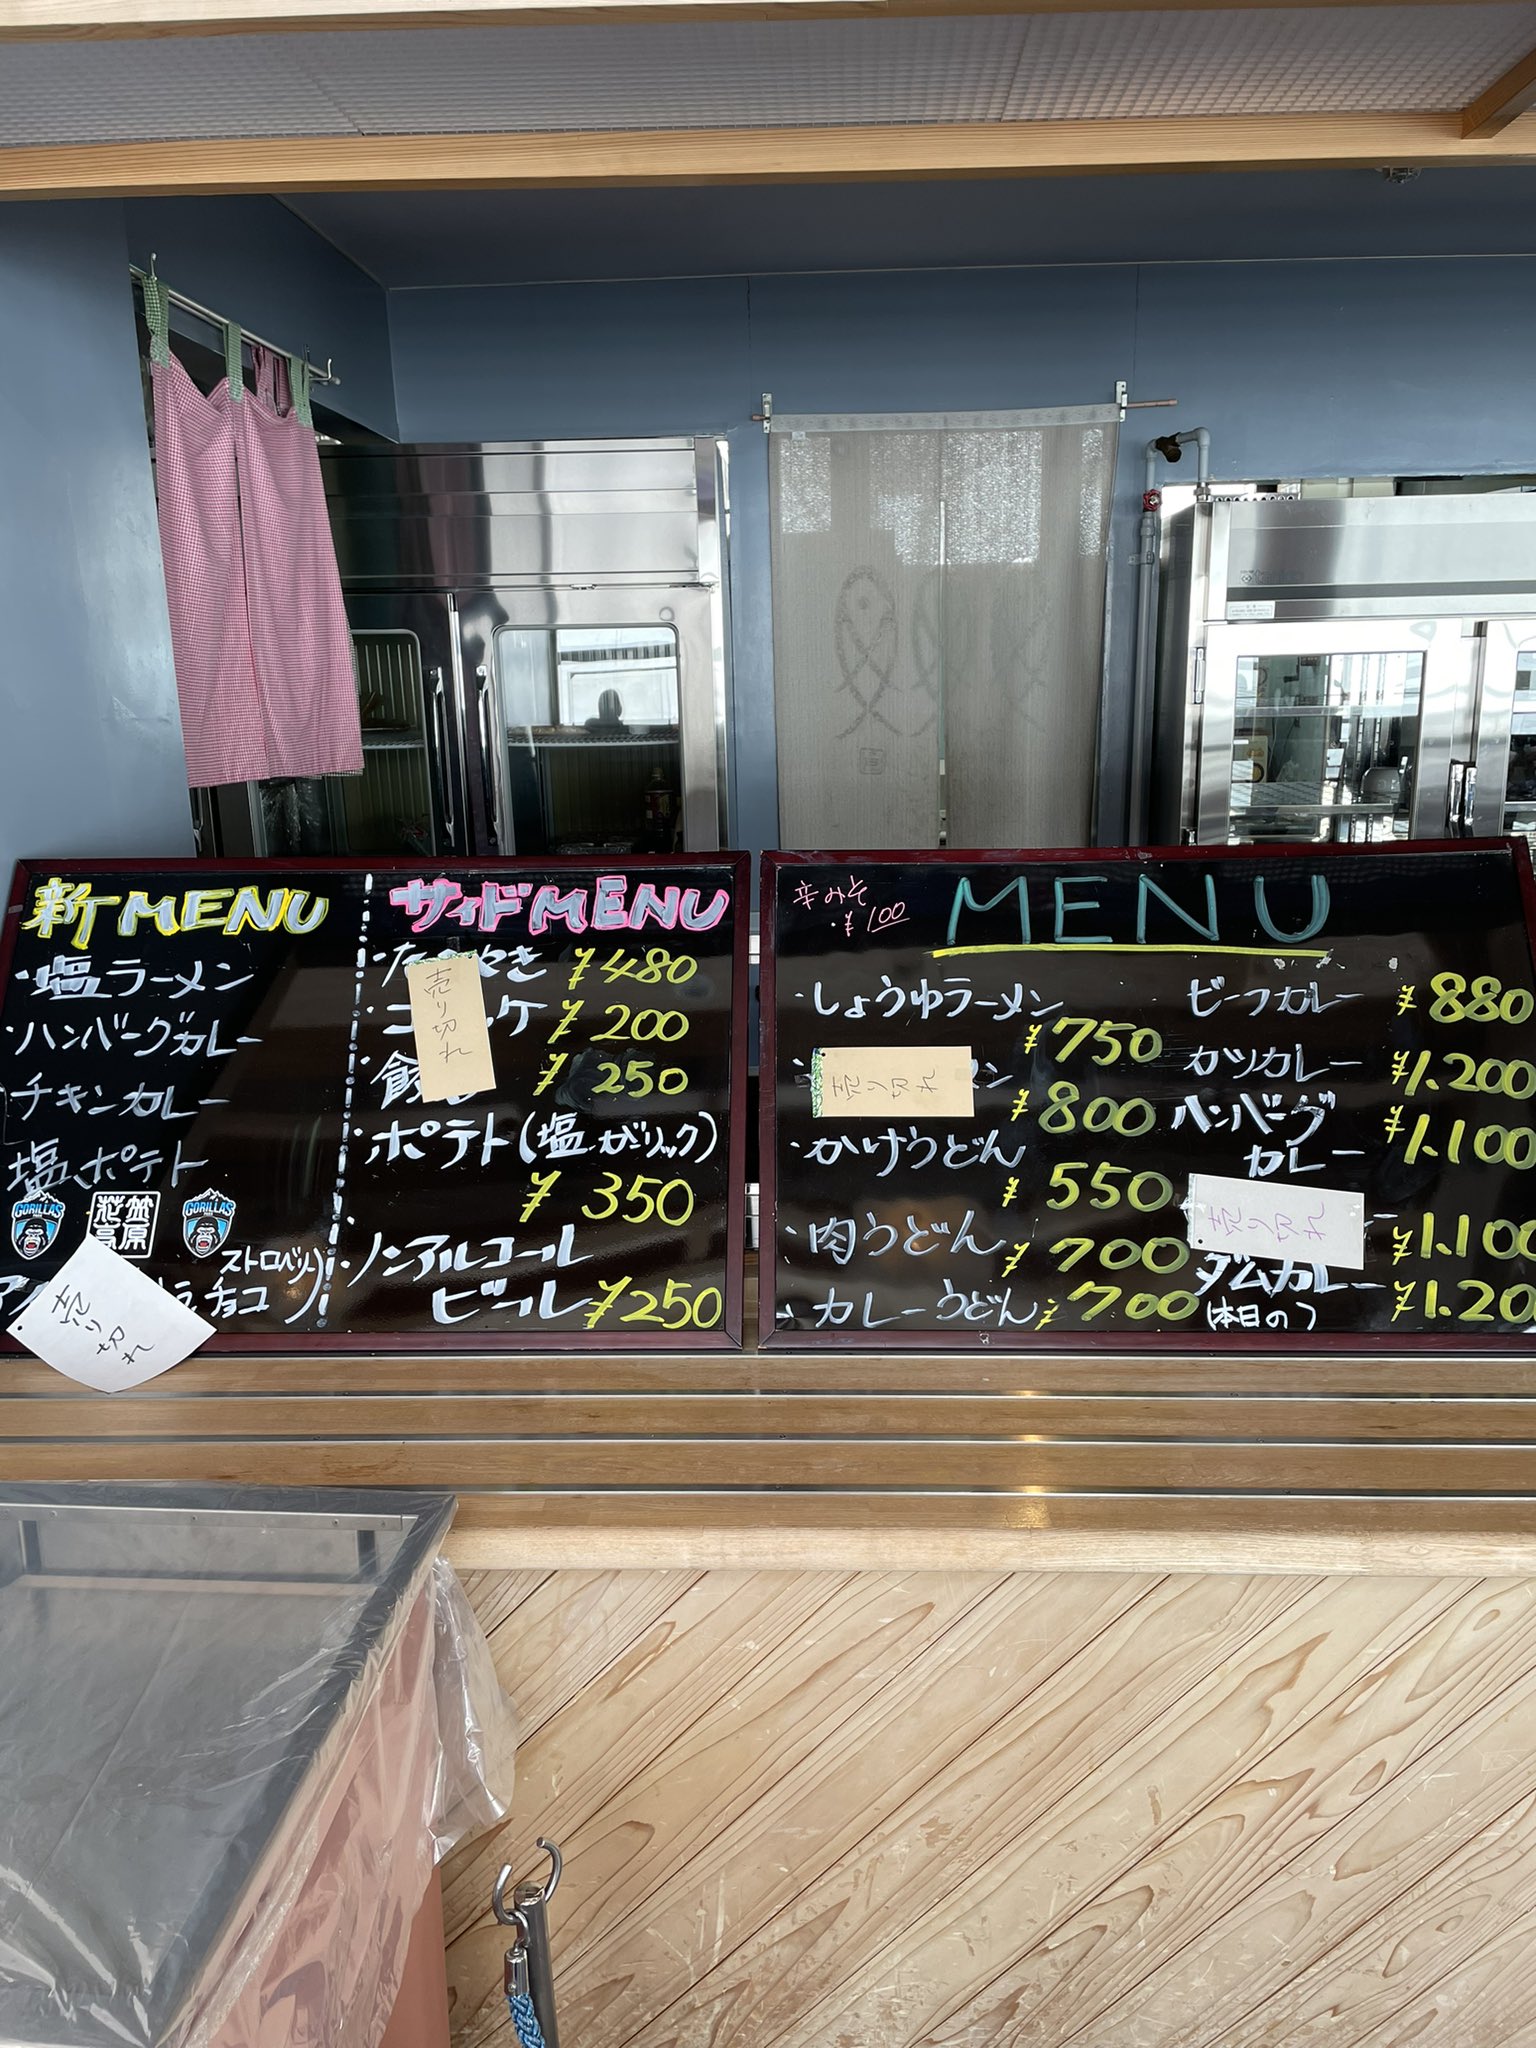 新MENU
・塩ラーメン
・ハンバーグカレー
チキンカレー
塩ポテト
GORILLAS
花笠高原
GORILLAS
ストロベリー
チョコ
売り切れ
サイドMENU
¥480
¥200
¥250
売り切れ
・ポテト(塩.ガーリック)
¥350
・ノンアルコール
ビール ¥250
辛みそ
・¥100
MENU
・しょうゆラーメン
¥750
売り切れ
¥800
・かけうどん
¥550
・肉うどん
¥700
・カレーうどん ¥700
ビーフカレー ¥880
カツカレー ¥1.200
ハンバーグ
カレー ¥1.100
売り切れ
¥1.100
ダムカレー
(本日の) ¥1.20